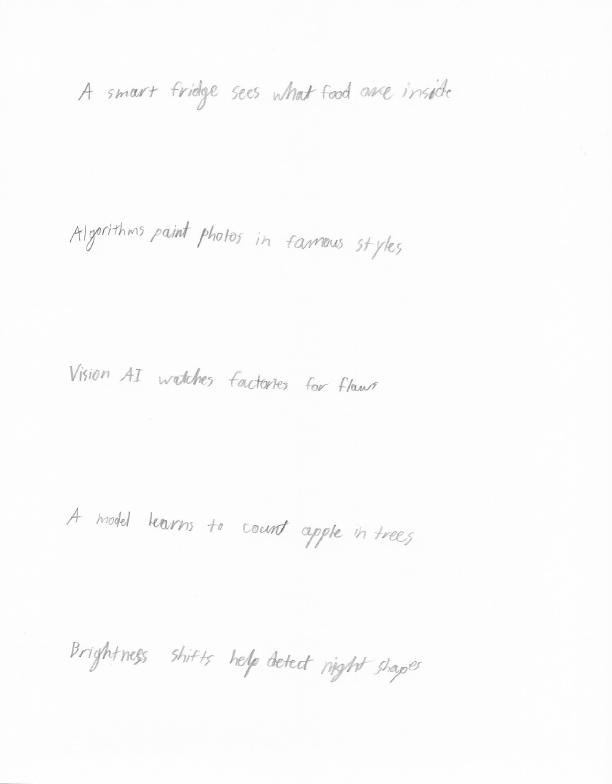 A smart fridge sees what food are inside
Algorithms paint photos in famous styles
Vision AI watches factories for flaws
A model learns to count apple in trees
Brightness shifts help detect night shapes